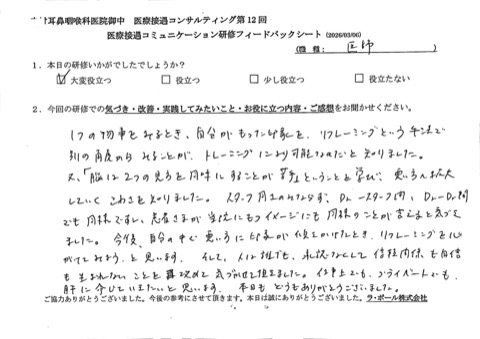 耳鼻咽喉科医院御中　医療接遇コンサルティング第12回
医療接遇コミュニケーション研修フィードバックシート (2026/03/06)
(職種： 医師 )
1．本日の研修いかがでしたでしょうか？
☑ 大変役立つ　□ 役立つ　□ 少し役立つ　□ 役立たない
2．今回の研修での気づき・改善・実践してみたいこと・お役に立つ内容・ご感想をお聞かせください。
1つの物事をみるとき、自分がもった印象を、リフレーミングという手法で
別の角度からみることが、トレーニングにより可能なのだと知りました。
又、「脳は2つの見方を同時にすることが苦手」ということを学び、悪い方へ拡大
していくこわさを知りました。スタッフ同士のみならず、Dr.ースタッフ間、Dr.ーDr.間
でも同様ですし、患者さまが当院にもつイメージにも同様のことが言えると気づき
ました。今後、自分の中で悪い方に印象が傾きかけたとき、リフレーミングを心
がけてみようと思います。そして、人は誰でも、承認なくして信頼関係も自信
も生まれないことを再度改めて気づかせて頂きました。仕事上でも、プライベートでも、
肝に命じていきたいと思います。本日もどうもありがとうございました。
ご協力ありがとうございました。今後の参考にさせて頂きます。本日は誠にありがとうございました。ラ・ポール株式会社